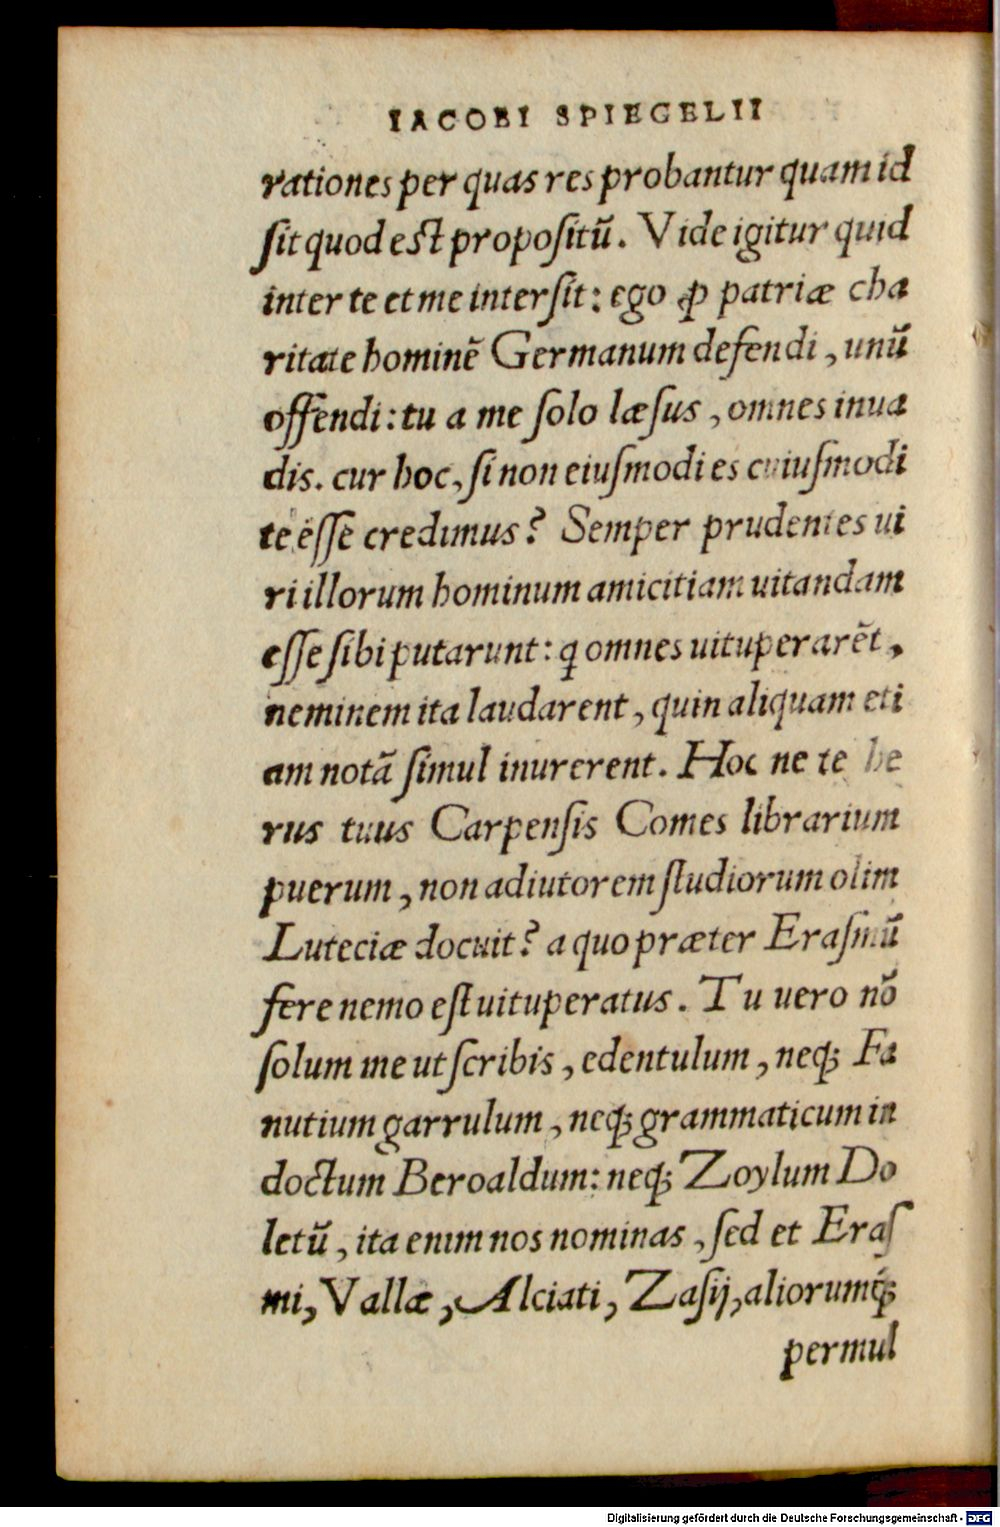 IACOBI SPIEGELII
rationes per quas res probantur quam id
ſit quod eſt propoſitū. Vide igitur quid
inter te et me interſit: ego ꝓ patriæ cha
ritate hominē Germanum defendi, unū
offendi: tu a me ſolo læſus, omnes inua
dis. cur hoc, ſi non eiuſmodi es cuiuſmodi
te eſſe credimus? Semper prudentes ui
ri illorum hominum amicitiam uitandam
eſſe ſibi putarunt: q omnes uituperarēt,
neminem ita laudarent, quin aliquam eti
am notā ſimul inurerent. Hoc ne te he
rus tuus Carpenſis Comes librarium
puerum, non adiutorem ſtudiorum olim
Luteciæ docuit? a quo præter Eraſmū
fere nemo eſt uituperatus. Tu uero nō
ſolum me ut ſcribis, edentulum, neq; Fa
nutium garrulum, neq; grammaticum in
doctum Beroaldum: neq; Zoylum Do
letū, ita enim nos nominas, ſed et Eraſ
mi, Vallæ, Alciati, Zaſij, aliorumq́;
permul
Digitalisierung gefördert durch die Deutsche Forschungsgemeinschaft - DFG